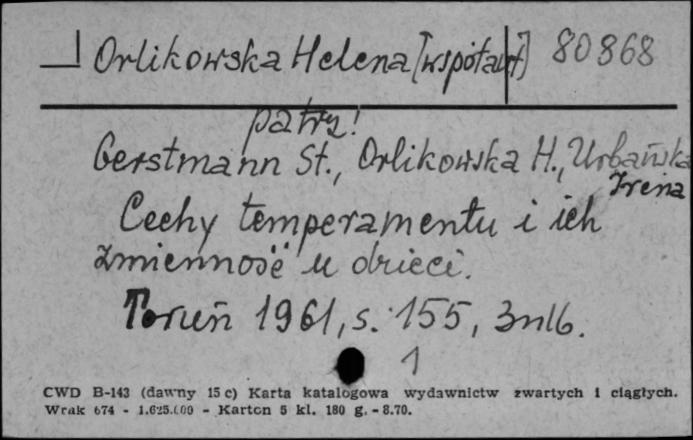 Orlikowska Helena [współaut] 80868
patrz!
Gerstmann St., Orlikowska H., Urbańska
Irena
Cechy temperamentu i ich
zmienność u dzieci.
Toruń 1961, s. 155, 3nlb.
1
CWD B-143 (dawny 15 c) Karta katalogowa wydawnictw zwartych i ciągłych.
Wrak 674 - 1.625.000 - Karton 5 kl. 180 g. - 8.70.